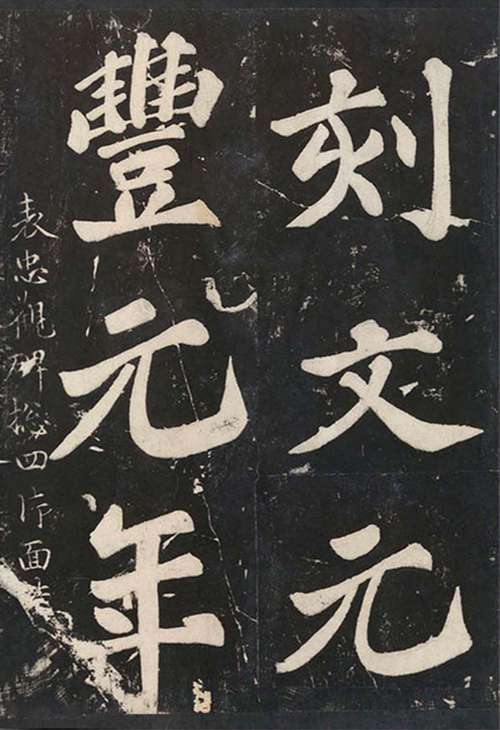 刻文元
豐元年
表忠觀碑捴四片面